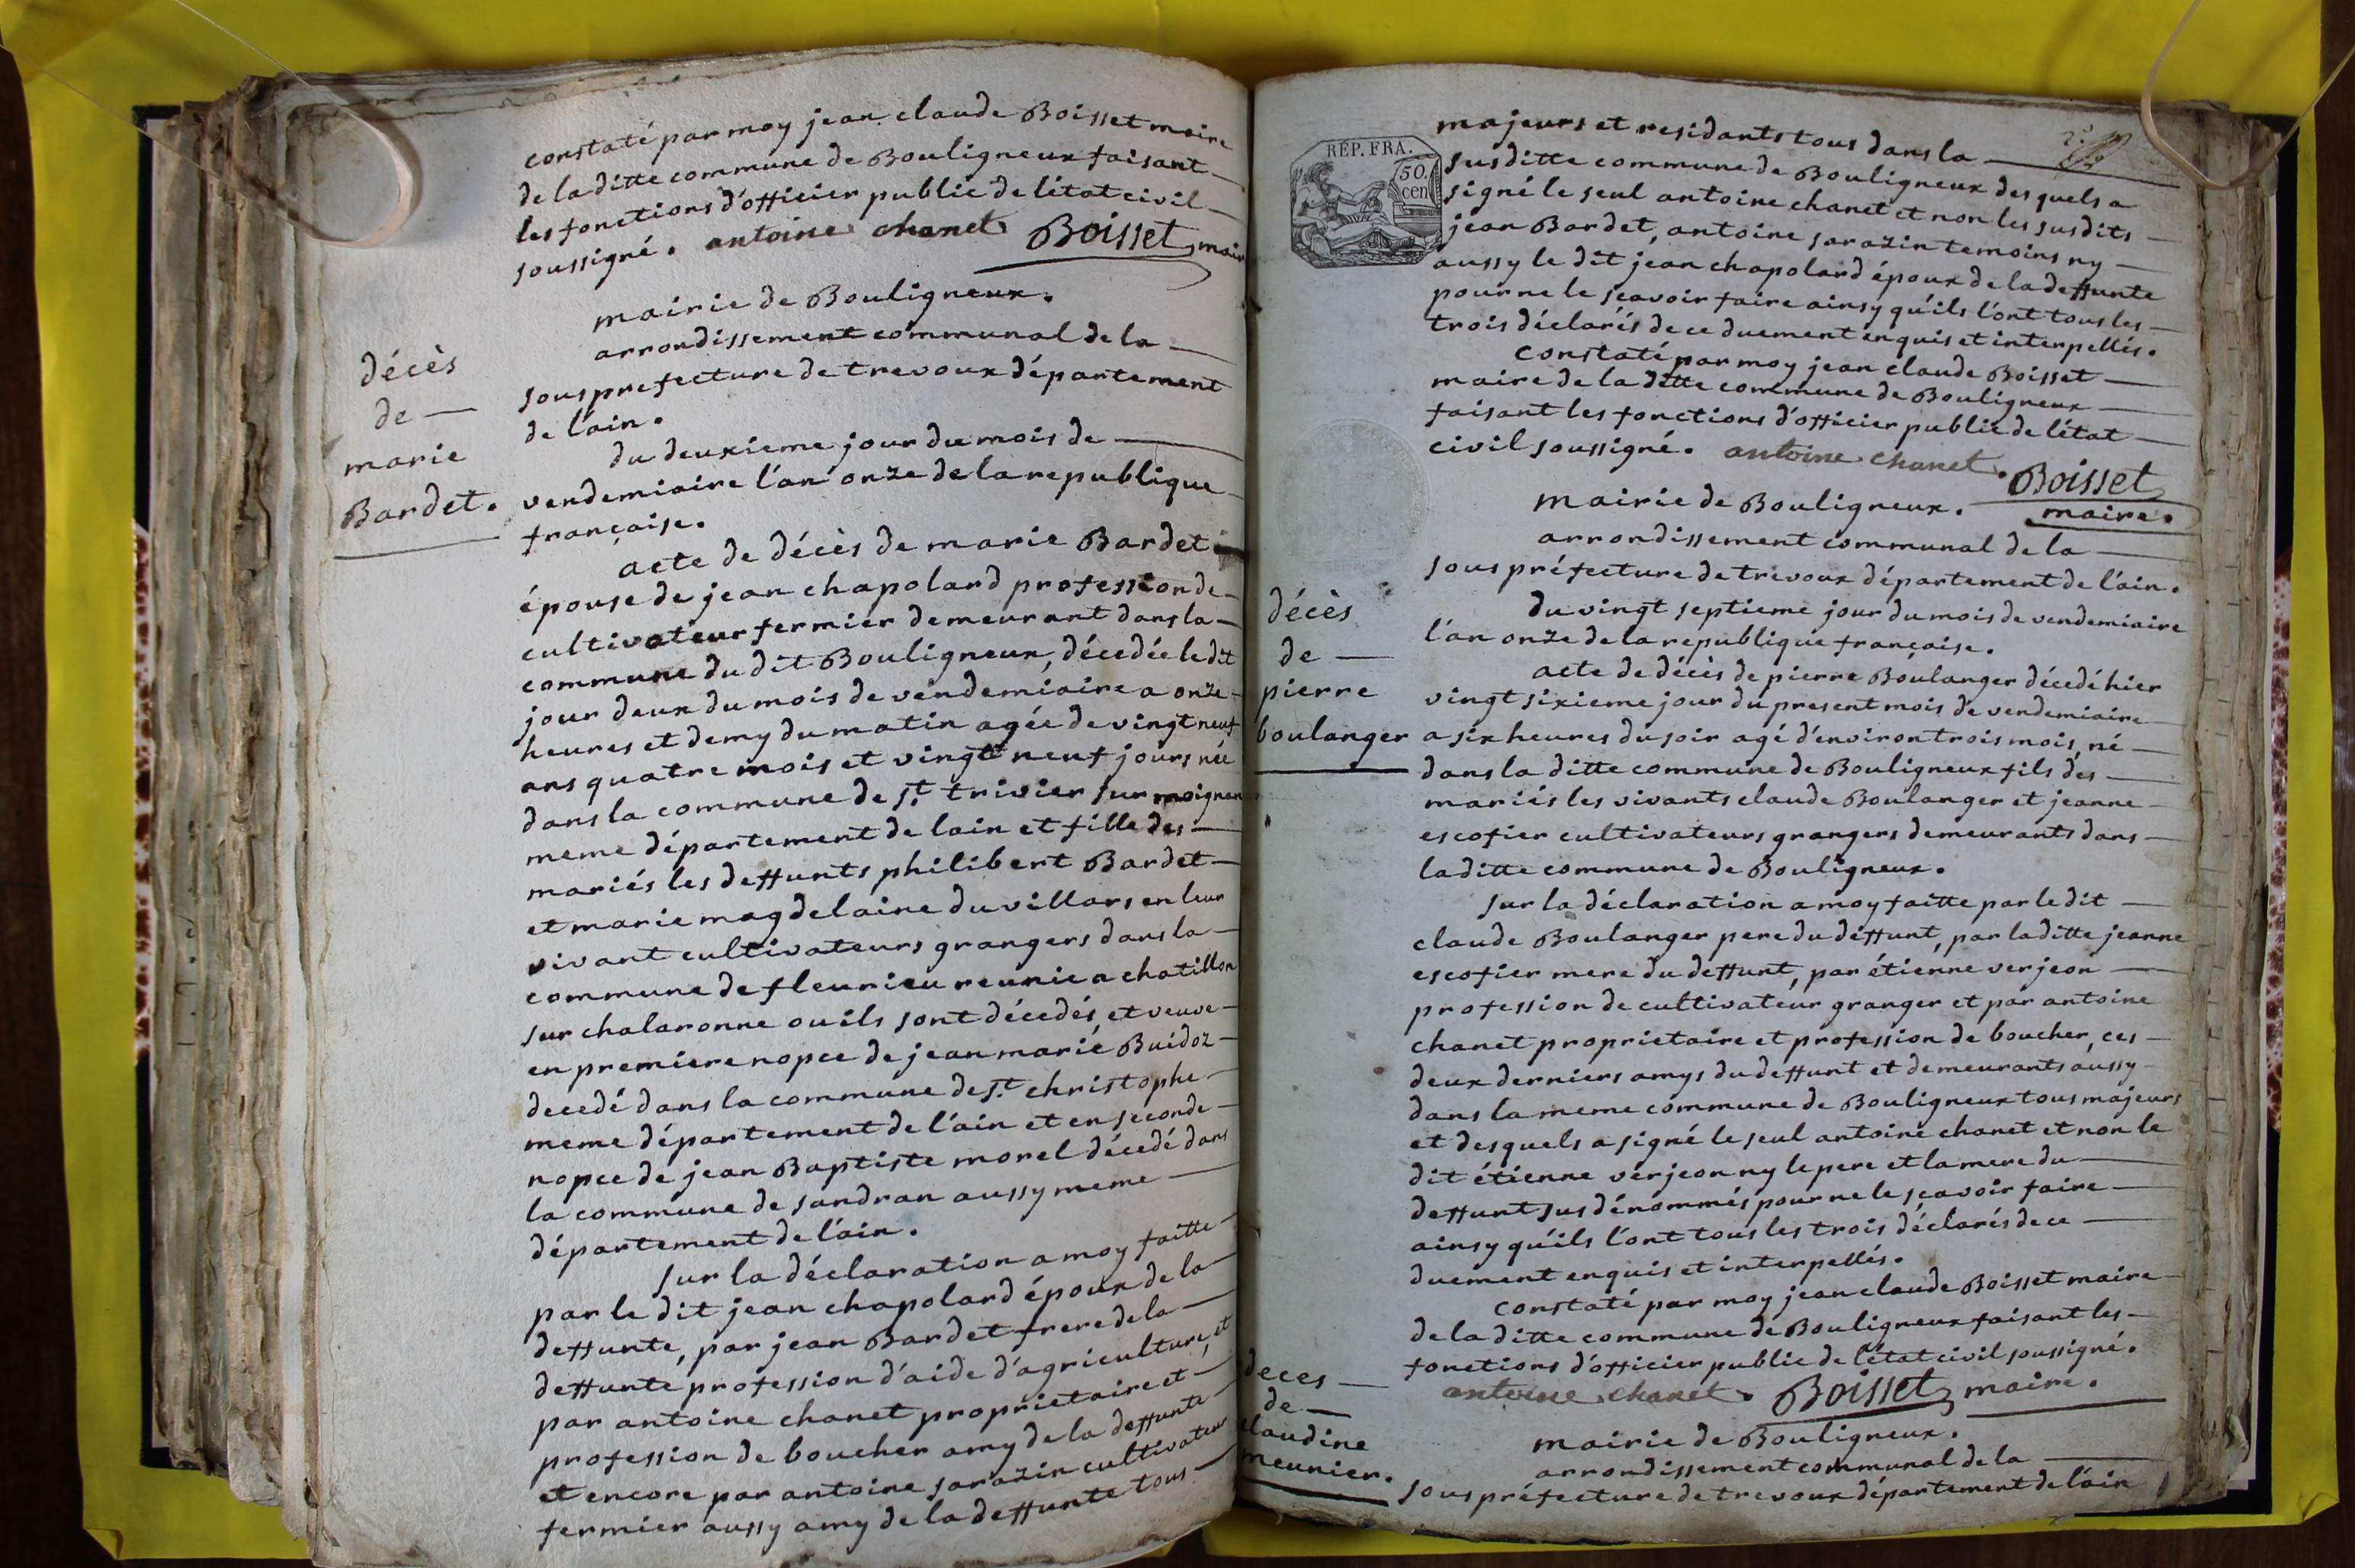 constaté par moy jean claude Boisset maire
de la ditte commune de Bouligneux faisant
les fonctions d'officier public de l'état civil
soussigné. antoine chanet Boisset maire
mairie de Bouligneux.
arrondissement communal de la
sous prefecture de trevoux département
de l'ain.
du deuxieme jour du mois de
vendemiaire l'an onze de la republique
française.
décès
de
marie
Bardet.
acte de décès de marie Bardet
épouse de jean chapolard profession de
cultivateur fermier demeurant dans la
commune du dit Bouligneux, décedée le dit
jour deux du mois de vendemiaire a onze
heures et demy du matin agée de vingt neuf
ans quatre mois et vingt neuf jours née
dans la commune de st. trivier sur moignan
meme département de lain et fille des
mariés les deffunts philibert Bardet
et marie magdelaine du villars en leur
vivant cultivateurs grangers dans la
commune de fleurieu reunie a chatillon
sur chalaronne ou ils sont décedés, et veuve
en premiere nopce de jean marie Buidoz
decedé dans la commune de st. christophe
meme département de l'ain et en seconde
nopce de jean Baptiste morel décedé dans
la commune de sandran aussy meme
département de l'ain.
sur la déclaration a moy faitte
par le dit jean chapolard époux de la
deffunte, par jean Bardet frere de la
deffunte profession d'aide d'agriculture, et
par antoine chanet proprietaire et
profession de boucher amy de la deffunte
et encore par antoine sarazin cultivateur
fermier aussy amy de la deffunte tous
RÉP. FRA.
50.
cen
majeurs et residants tous dans la
susditte commune de Bouligneux desquels a
signé le seul antoine chanet et non les susdits
jean Bardet, antoine sarazin temoins ny
aussy le dit jean chapolard époux de la deffunte
pour ne le sçavoir faire ainsy qu'ils l'ont tous les
trois déclarés de ce duement enquis et interpellés.
constaté par moy jean claude Boisset
maire de la ditte commune de Bouligneux
faisant les fonctions d'officier public de l'état
civil soussigné. antoine chanet. Boisset
maire.
mairie de Bouligneux.
arrondissement communal de la
sous préfecture de trevoux département de l'ain.
du vingt septieme jour du mois de vendemiaire
l'an onze de la republique française.
décès
de
pierre
boulanger
acte de décès de pierre Boulanger décedé hier
vingt sixieme jour du present mois de vendemiaire
a six heures du soir agé d'environ trois mois, né
dans la ditte commune de Bouligneux fils des
mariés les vivants claude Boulanger et jeanne
escofier cultivateurs grangers demeurants dans
la ditte commune de Bouligneux.
sur la déclaration a moy faitte par le dit
claude Boulanger pere du deffunt, par la ditte jeanne
escofier mere du deffunt, par étienne verjeon
profession de cultivateur granger et par antoine
chanet proprietaire et profession de boucher, ces
deux derniers amys du deffunt et demeurants aussy
dans la meme commune de Bouligneux tous majeurs
et desquels a signé le seul antoine chanet et non le
dit étienne verjeon ny le pere et la mere du
deffunt sus dénommés pour ne le sçavoir faire
ainsy qu'ils l'ont tous les trois déclarés de ce
duement enquis et interpellés.
constaté par moy jean claude Boisset maire
de la ditte commune de Bouligneux faisant les
fonctions d'officier public de l'état civil soussigné.
antoine chanet. Boisset maire.
deces
de
claudine
meunier.
mairie de Bouligneux.
arrondissement communal de la
sous préfecture de trevoux département de l'ain